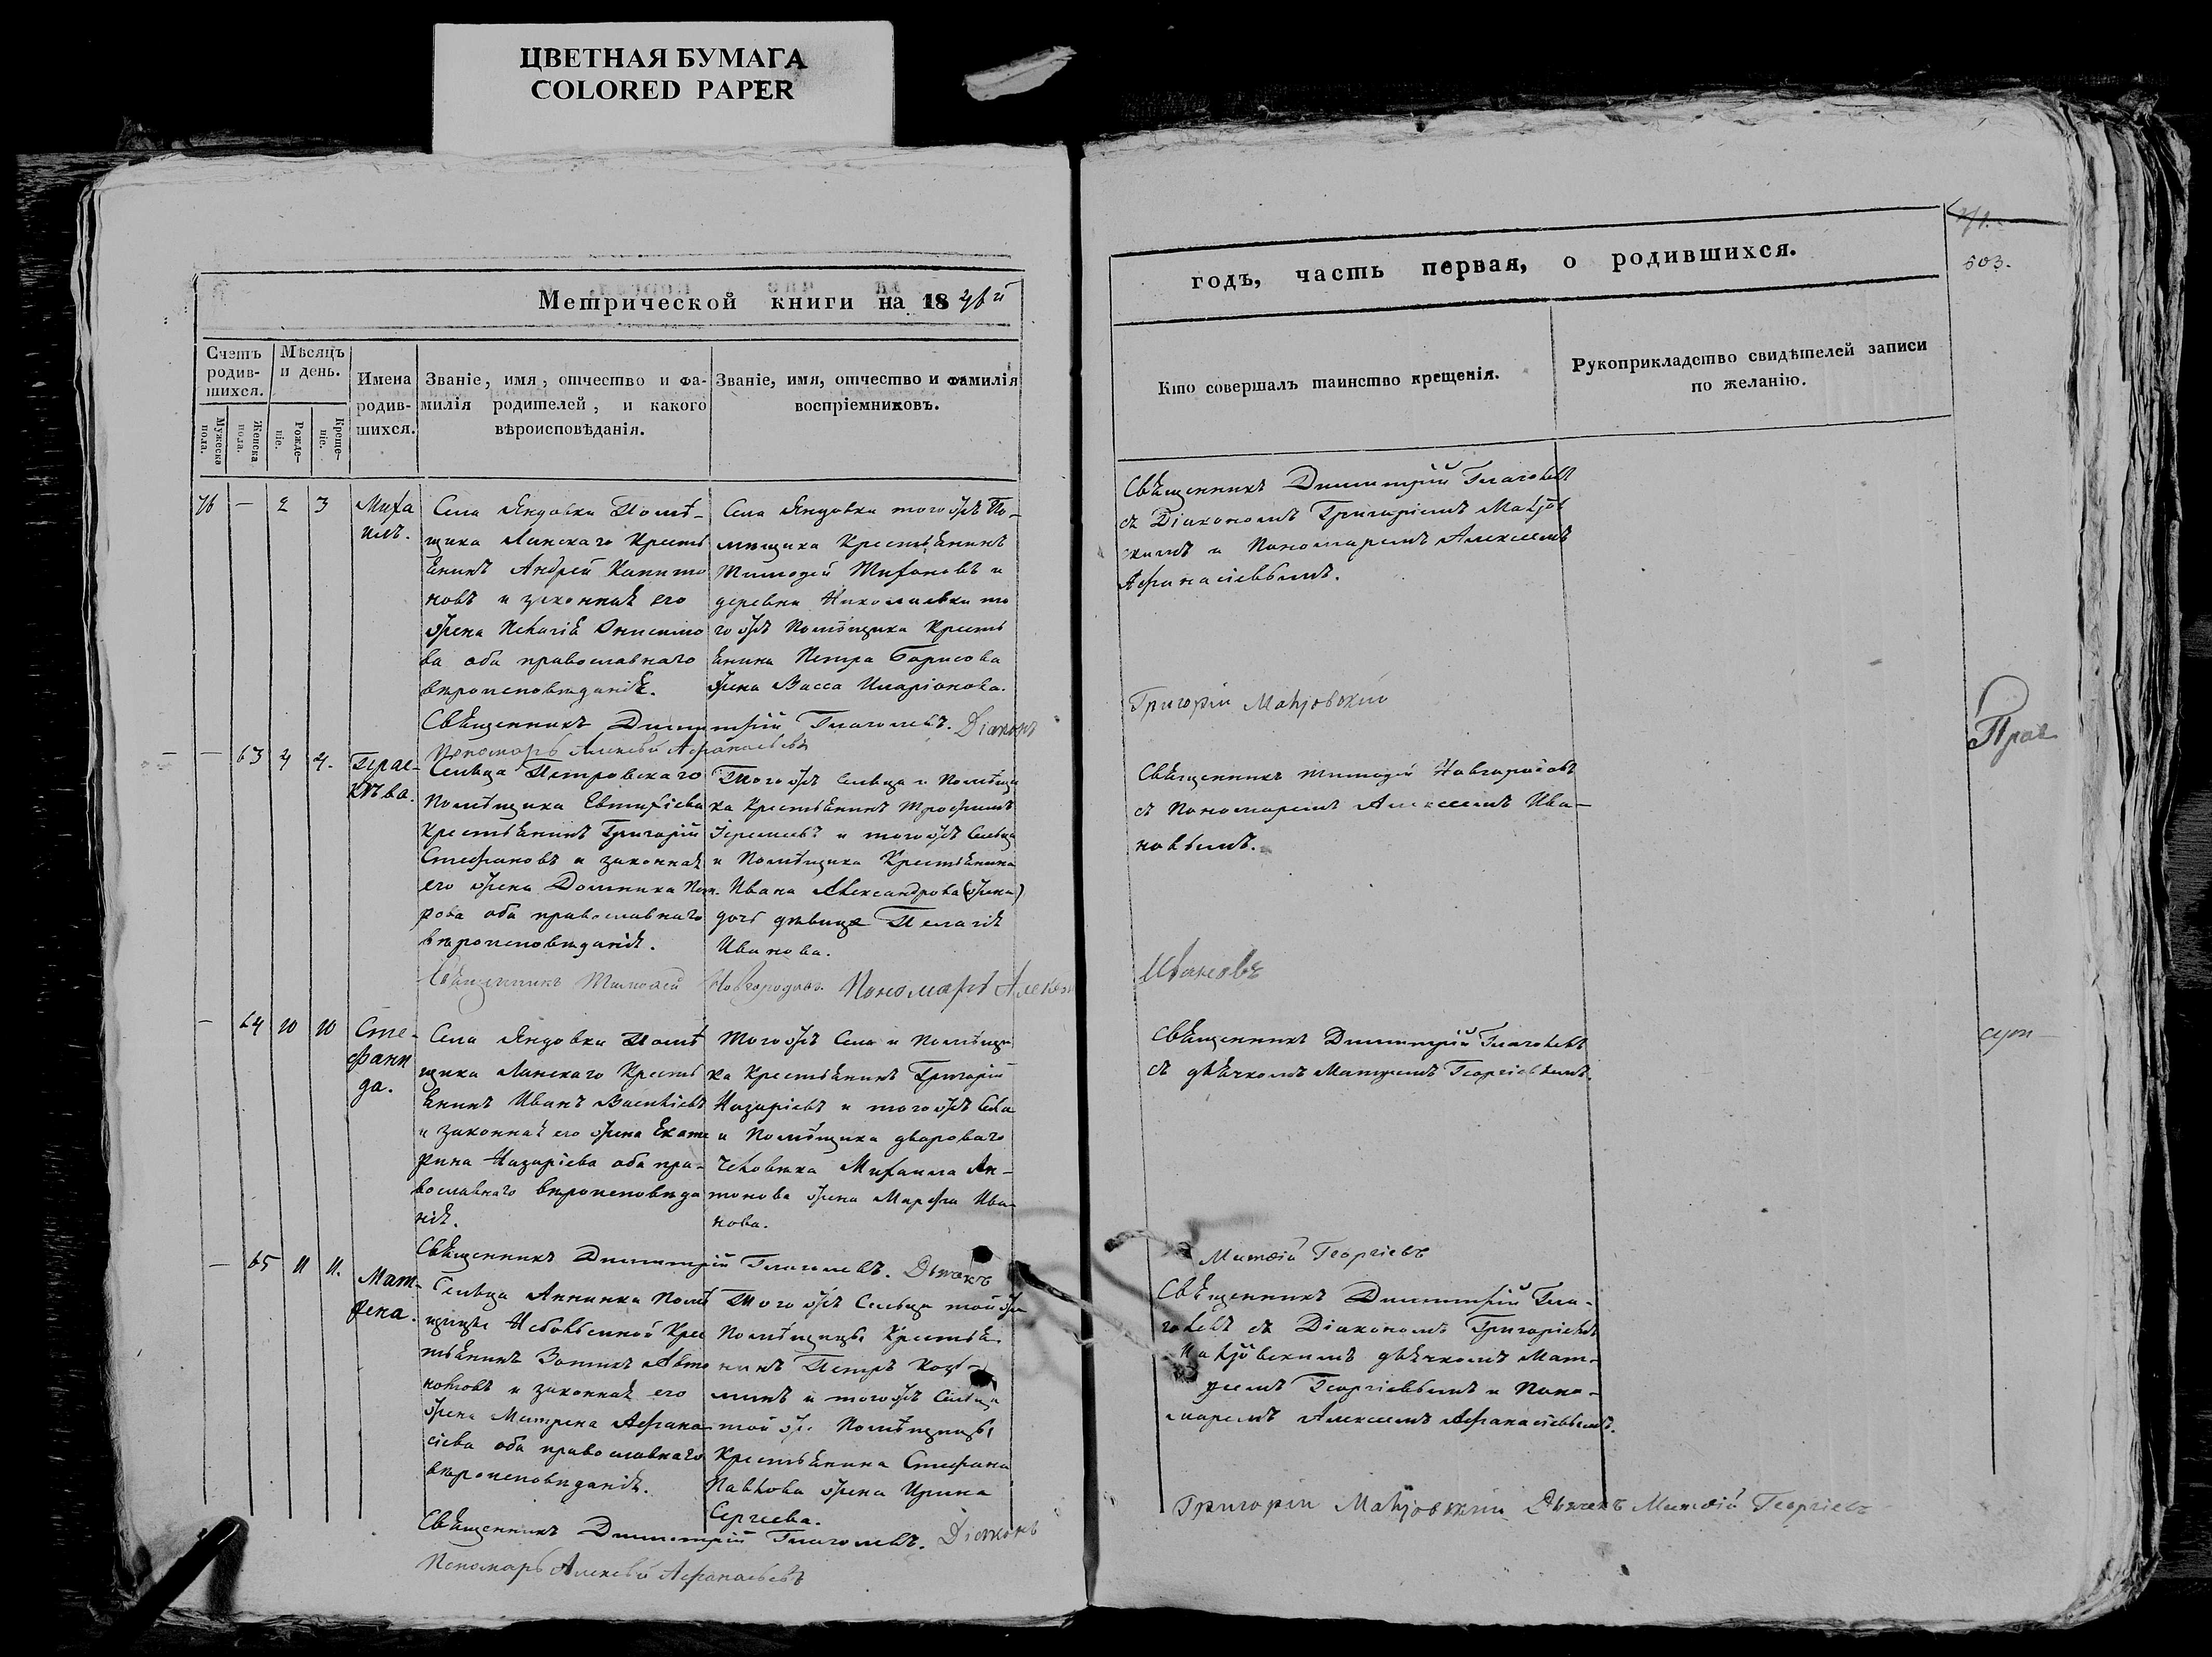 ЦВЕТНАЯ БУМАГА
COLORED PAPER
Метрической книги на 1846й
Счетъ родив-шихся.
Мѣсяцъ и день.
Мужеска пола.
Женска пола.
Рожде-ніе.
Креще-ніе.
Имена родив-шихся.
Званіе, имя, отчество и фа-
милія родителей, и какого
вѣроисповѣданія.
Званіе, имя, отчество и фамилія
воспріемниковъ.
46 — 2 3
Миха
илъ.
Села Яндовки Помѣ-
щика Ланскаго Кресть
янинъ Андрей Капито
новъ и законная его
жена Пелагія Онисимо
ва оба православнаго
вѣроисповѣданія.
Села Яндовки тогожъ По-
мѣщика Крестьянинъ
Тимофей Тихоновъ и
деревни Николаевки то
гожъ Помѣщика Кресть
янина Петра Борисова
жена Васса Иларіонова.
Священникъ Димитрій Глаголевъ. Діаконъ
Пономарь Алексѣй Афанасьевъ
— 63 4 4.
Прас-
кѣва.
Сельца Петровскаго
Помѣщика Евтифіева
Крестьянинъ Григорій
Стефановъ и законная
его жена Домника Пет
рова оба православнаго
вѣроисповѣданія.
Тогожъ сельца и Помѣщи
ка Крестьянинъ Трофимъ
Іеремеевъ и тогожъ Сельца
и Помѣщика Крестьянина
Ивана Александрова (жена)
дочь дѣвица Пелагія
Иванова.
Священникъ Тимофей Новгородовъ. Пономарь Алексѣй
— 64 10 10
Сте-
фани
да.
Села Яндовки Помѣ
щика Ланскаго Кресть
янинъ Иванъ Васильевъ
и законная его жена Екате
рина Назаріева оба пра-
вославнаго вѣроисповѣда
нія.
Тогожъ Села и Помѣщи
ка Крестьянинъ Григорій
Назаріевъ и тогожъ Села
и Помѣщика двороваго
человѣка Михаила Ан-
тонова жена Марфа Ива
нова.
Священникъ Димитрій Глаголевъ. Дьячекъ
— 65 11 11.
Мат-
рена.
Сельца Аннинки Помѣ
щицы Крес
тьянинъ Зотикъ Анто
новъ и законная его
жена Матрена Афана
сіева оба православнаго
вѣроисповѣданія.
Тогожъ Сельца тойже
Помѣщицы Крестья
нинъ Петръ Козь-
минъ и тогожъ Сельца
той же Помѣщицы
Крестьянина Стефана
Павлова жена Ирина
Сергеева.
Священникъ Димитрій Глаголевъ. Діаконъ
Пономарь Алексѣй Афанасьевъ
годъ, часть первая, о родившихся.
503.
Кто совершалъ таинство крещенія.
Рукоприкладство свидѣтелей записи
по желанію.
Священникъ Димитрій Глаголевъ
съ Діакономъ Григоріемъ
и Пономаремъ Алексеемъ
Афанасіевымъ.
Григорій
Прас
Священникъ Тимофей Новгородовъ
съ Пономаремъ Алексеемъ Ива-
новымъ.
Ивановъ
Священникъ Димитрій Глаголевъ
съ дьячкомъ Матфеемъ Георгіевымъ.
Матфій Георгіевъ
Священникъ Димитрій Гла-
голевъ съ Діакономъ Григоріемъ
дьячкомъ Мат-
феемъ Георгіевымъ и Поно-
маремъ Алексеемъ Афанасіевымъ.
Григорій Дьячекъ Матфій Георгіевъ